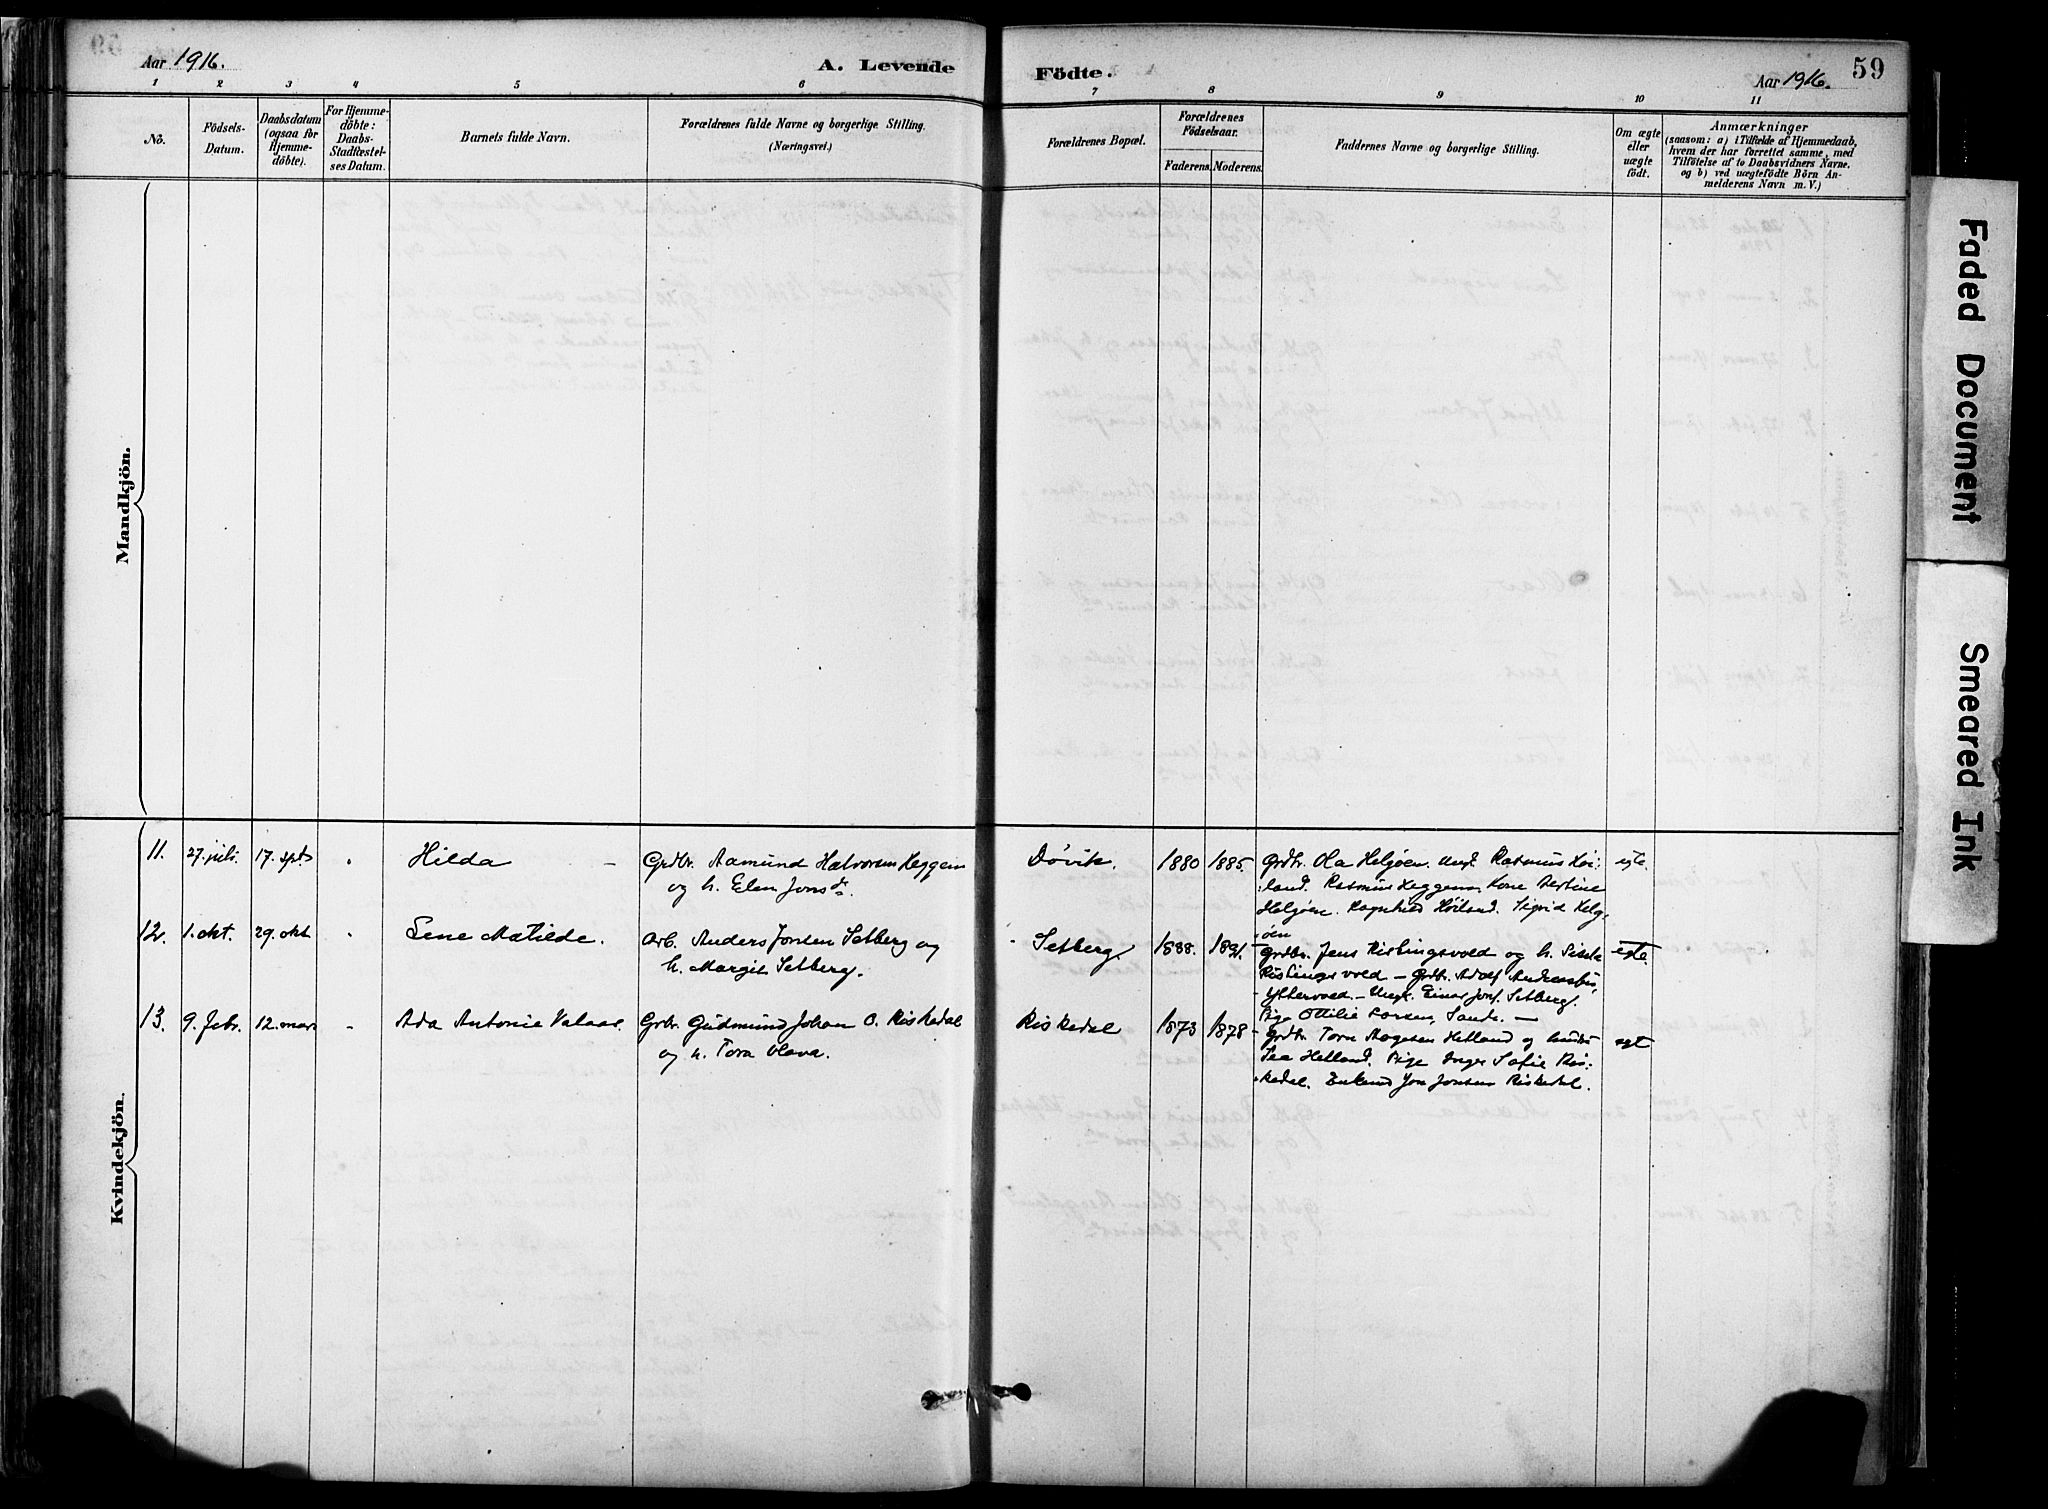 Aar 1916.
A. Levende
Födte.
Aar 1916.
59
1 2 3 4 5 6 7 8 9 10 11
No.
Födsels-
Datum.
Daabsdatum
(ogsaa for
Hjemme-
döbte).
For Hjemme-
döbte:
Daabs-
Stadfæstel-
ses Datum.
Barnets fulde Navn.
Forældrenes fulde Navne og borgerlige Stilling.
(Næringsvei.)
Forældrenes Bopæl.
Forældrenes
Födselsaar.
Faderens. Moderens.
Faddernes Navne og borgerlige Stilling.
Om ægte
eller
uægte
födt.
Anmærkninger
(saasom: a) i Tilfælde af Hjemmedaab,
hvem der har forrettet samme, med
Tilföielse af to Daabsvidners Navne,
og b) ved uægtefödte Börn An-
melderens Navn m. V.)
Mandkjön.
Kvindekjön.
11. 27. juli. 17. spt. Hilda Grdbr. Aamund Halvorsen Heggem
og h. Elen Jonsdr.
Døvik. 1880 1885. Grdbr. Ola Helgøen. Ungk. Rasmus Høi-
land. Rasmus Heggem. Kone Bertine
Helgøen. Ragnhild Høiland. Sigrid Helg-
øen
egte.
12. 1. okt. 29. okt Lene Matilde. Arb. Anders Jonsen Setberg og
h. Margit Setberg.
Setberg. 1888. 1891. Grdbr. Jens Kislingsvold og h. Sisele
Kislingsvold – Grdbr. Adolf
Yttervold – Ungk. Einar Jons. Setberg.
Pige Ottilie Larsen, Sande. –
egte.
13. 9. febr. 12. mars Ada Antonie Valaas. Grbr. Gudmund Johan O. Riskedal
og h. Tora Olava.
Riskedal 1873 1878 Grdbr. Tore Aagesen Helland og hustru
Lea Helland. Pige Inger Sofie Ris-
kedal. Enkemd Jon Jonsen Riskedal.
egt
Faded Document
Smeared Ink